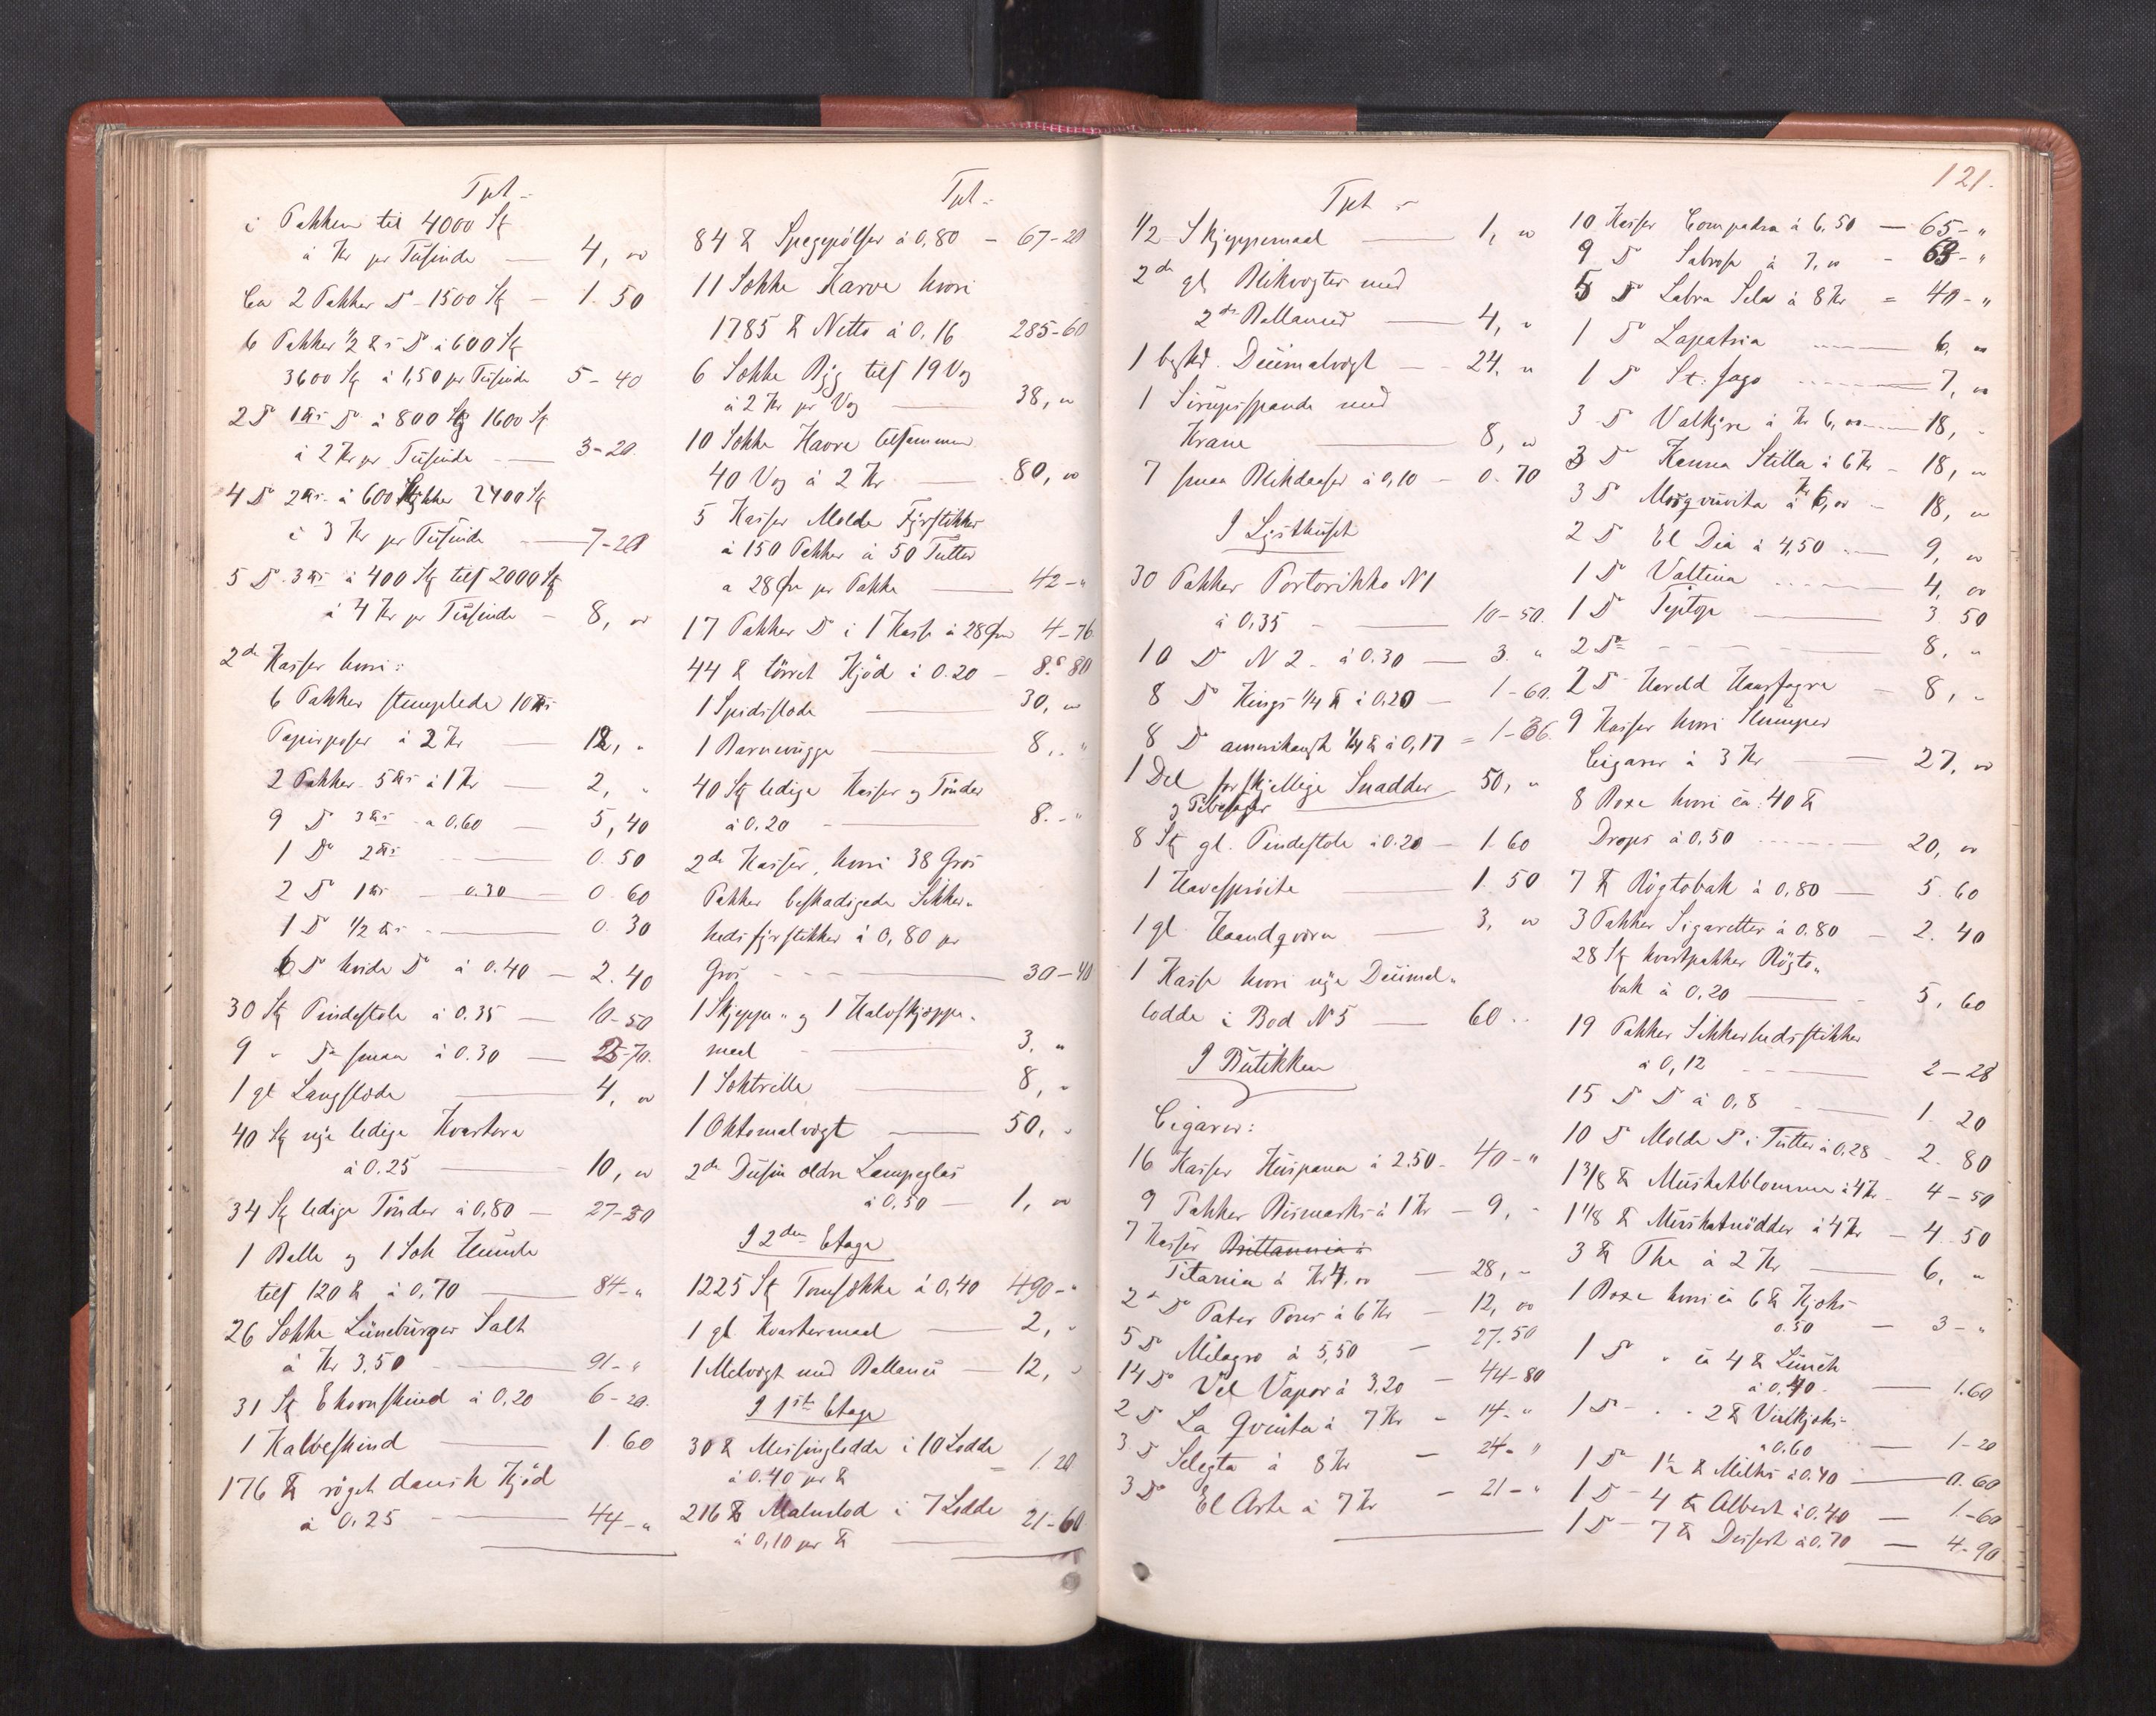 Tpt.
i Pakken til 4000 Stk
à Kr pr Tusinde — 4, 00
Ca 2 Pakker Do - 1500 Stk — 1. 50
6 Pakker 1/2 ℔s Do à 600 Stk
3600 Stk à 1,50 pr Tusinde 5-40
2 Do 1℔s Do à 800 Stk 1600 Stk
à 2 Kr pr Tusinde — 3-20.
4 Do 2℔s à 600 Stkker 2400 Stk
à 3 Kr pr Tusinde — 7-20
5 Do 3℔s à 400 Stk tils 2000 Stk
à 4 Kr pr Tusinde — 8, 00
2de Kasser hvori:
6 Pakker stemplede 10℔s
Papirposer à 2 Kr — 12, "
2 Pakker 5℔s à 1 Kr — 2, "
9 Do 3℔s - a 0.60 — 5,40
1 Do 2℔s — 0.50
2 Do 1℔s - 0.30 — 0.60
1 Do 1/2℔s — 0.30
6 Do hvide Do à 0.40 — 2.40
30 Stk Pindestole à 0.35 — 10-50
9 " Do smaa à 0.30 — 2-70.
1 gl Langslæde — 4, 00
40 Stk nye ledige Kvartere
à 0.25 — 10, 00
34 Stk ledige Tönder à 0,80 — 27-20
1 Balle og 1 Sæk Humle
tils 120 ℔ à 0,70 — 84-"
26 Sække Lüneburger Salt
à Kr 3,50 — 91-"
31 Stk Ekornskind à 0,20 6-20.
1 Kalveskind — 1.60
176 ℔ röget dansk Kjöd
à 0.25 — 44-"
Tpt.
84 ℔ Spegepölser à 0,80 - 67-20
11 Sække Karve hvori
1785 ℔ Netto à 0.16 285-60
6 Sække Byg tils 19 Vog
à 2 Kr pr Vog — 38, 00
10 Sække Havre tilsammen
40 Vog à 2 Kr — 80, 00
5 Kasser Molde Fyrstikker
à 150 Pakker à 50 Tutter
a 28 Øre pr Pakke — 42-"
17 Pakker Do i 1 Kasse à 28 Øre 4-76.
44 ℔ törret Kjöd à 0.20 - 8.80
1 Spidsslæde — 30, 00
1 Barnevugge — 8, "
40 Stk ledige Kasser og Tönder
à 0.20 — 8.-"
2de Kasser, hvori 38 Gros
Pakker beskadigede Sikker-
hedsfyrstikker à 0,80 pr
Gros — 30-40
1 Skjeppe- og 1 Halvskjeppe-
maal — 3, "
1 Sæktrille — 8, "
1 Oktomalvægt — 50, "
2de Dusin ældre Lampeglas
à 0,50 — 1, 00
I 2den Etage
1225 Stk Tomsække à 0,40 490-"
1 gl. Kvartermaal — 2, "
1 Melvægt med Ballance — 12, "
I 1ste Etage
30 ℔ Messinglodde i 10 Lodde
à 0.40 pr ℔ = 1.20
216 ℔ Malmlod i 7 Lodde
à 0,10 pr ℔ — 21-60
Tpt.
1/2 Skjeppemaal — 1, 00
2de gl Blikvægter med
2de Ballancer — 4, "
1 beskd. Decimalvægt — 24, "
1 Sirupsspande med
Krane — 8, 00
7 smaa Blikdaaser à 0,10 - 0.70
I Lysthuset
30 Pakker Portorikko N 1
à 0,35 — 10-50.
10 Do N 2 - à 0.30 — 3. "
8 Do Kings 1/4 ℔ à 0.20 — 1-60.
8 Do amerikansk 1/4 ℔ à 0,17 = 1-36.
1 Del forskjellige Snadder 50, "
og Pibesager
8 Stk gl. Pindestole à 0.20 — 1.60
1 Havesprøite — 1.50
1 gl. Haandqværn — 3, 00
1 Kasse hvori nye Decimal-
lodde i Bod N 5 — 60..
I Butikken
Cigarer:
16 Kasser Huspana à 2.50 - 40-"
9 Pakker Bismarks à 1 Kr — 9, -
7 Kasser Brittannia à
Titania à Kr 4.00 — 28, -
2 Do Pater Pons à 6 Kr — 12, 00
5 Do Milagro à 5,50 — 27.50
14 Do Vel Vapor à 3,20 — 44-80
2 Do La Qvinta à 7 Kr — 14-"
3 Do Selegta à 8 Kr — 24-"
3 Do El Arte à 7 Kr — 21-"
121.
10 Kasser Compadra à 6,50 — 65-"
9 Do Sabrosa à 7,00 - 63-"
5 Do Labra Sela à 8 Kr = 40-"
1 Do Lapatria — 6, 00
1 Do St: Jago — 7, 00
3 Do Valkyre à Kr 6,00 — 18, -
3 Do Kanna Stilla à 6 Kr - 18, 00
3 Do à Kr 6,00 — 18, 00
2 Do El Dia à 4,50 — 9, 00
1 Do Valtina — 4, 00
1 Do Tiptop — 3.50
2 Do — 8, "
2 Do Harald Haarfagre — 8, "
9 Kasser hvori Stumper
Cigarer à 3 Kr — 27, 00
8 Boxe hvori ca: 40 ℔
Drops à 0,50 — 20, 00
7 ℔ Rögtobak à 0,80 — 5.60
3 Pakker Sigaretter à 0.80 — 2.40
28 Stk kvartpakker Rögto-
bak à 0,20 — 5.60
19 Pakker Sikkerhedsstikker
à 0,12 — 2-28
15 Do Do à 0,8 — 1.20
10 Do Molde Do i Tutter à 0,28 - 2.80
1 3/8 ℔ Muskatblomme à 4 Kr. 4-50
1 1/8 ℔ Muskatnödder à 4 Kr — 4.50
3 ℔ The à 2 Kr — 6, "
1 Boxe hvori ca 6 ℔ Kjeks
0.50 — 3-"
1 Do " ca 4 ℔ Lunch
à 0,40 — 1.60
1 Do - - 2 ℔ Vinkjeks
à 0.60 — 1-20
1 Do 1½ ℔ Milks à 0.40 — 0.60
1 Do 4 ℔ Albert à 0.40 — 1.-60
1 Do 7 ℔ Dessert à 0.70 — 4-90